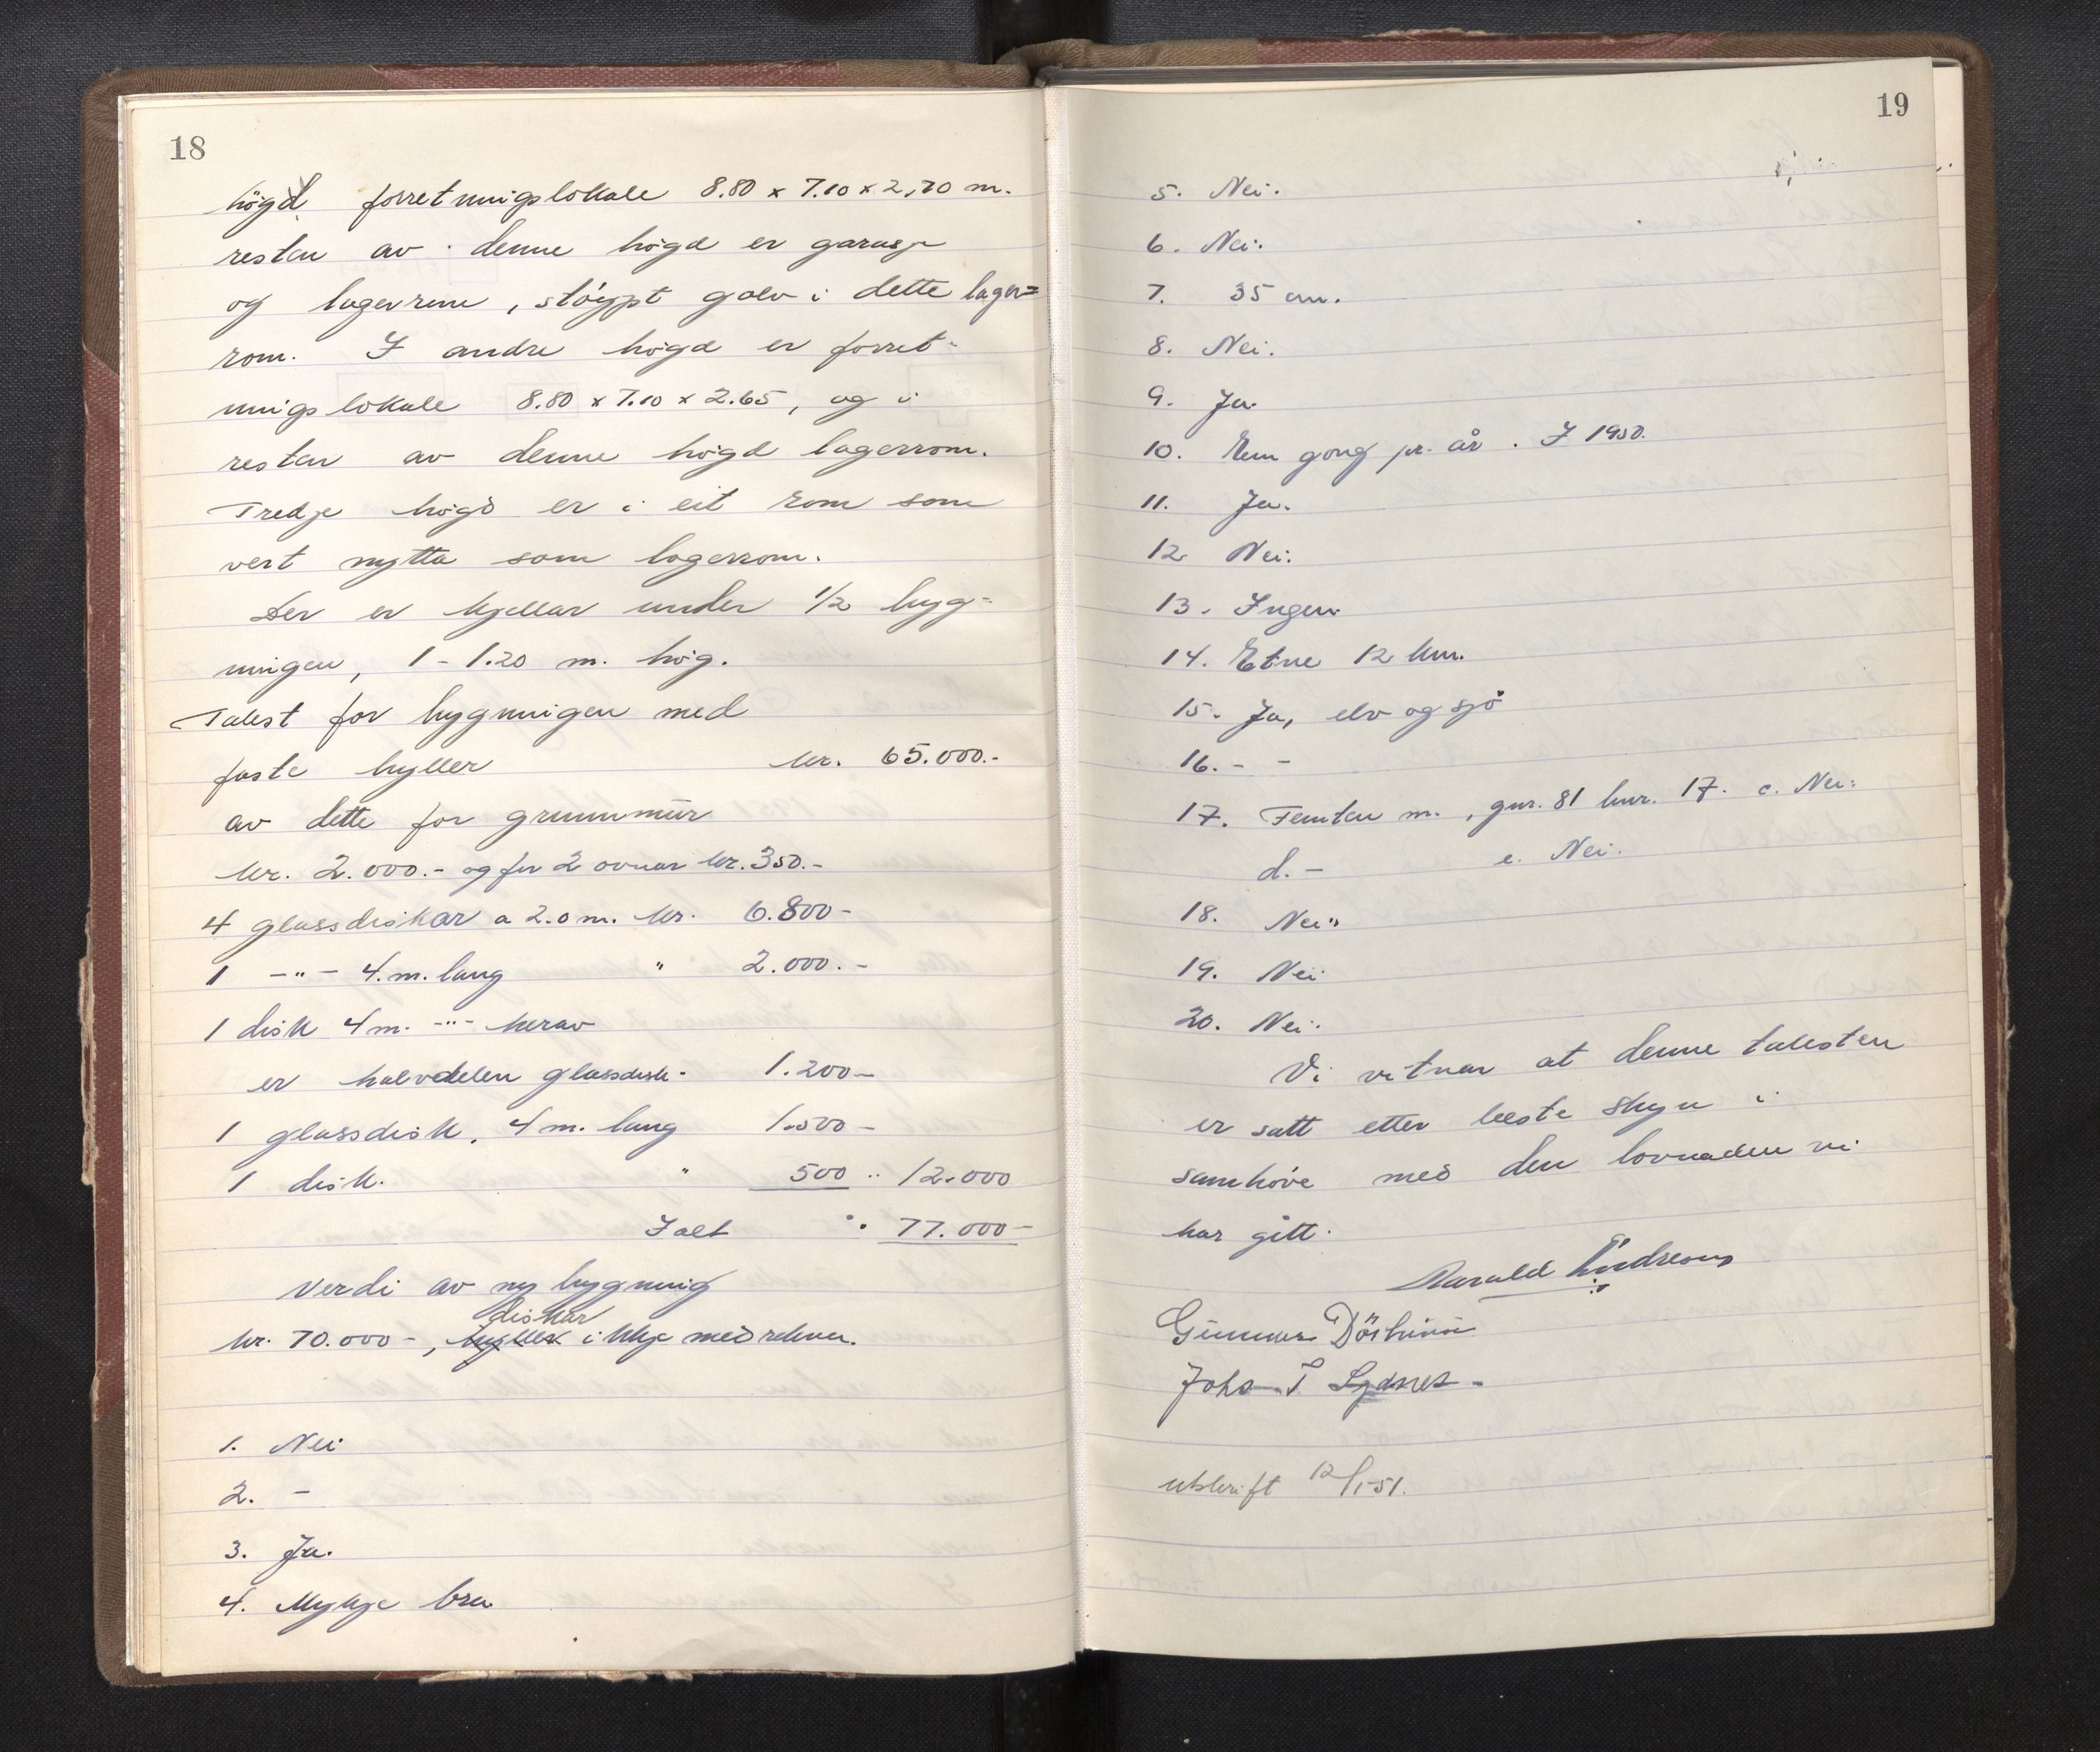 18
högd forretningslokale 8.80 x 7.10 x 2,70 m.
resten av denne högd er garasje
og lagerrom, støypt golv i dette lager=
rom. I andre högd er forret-
ningslokale 8.80 x 7.10 x 2.65, og i
resten av denne högd lagerrom.
Tredje högd er i eit rom som
vert nytta som lagerrom.
Der er kjellar under 1/2 byg=
ningen, 1 - 1.20 m. høg.
Takst for bygningen med
faste hyller kr. 65.000.-
av dette for grunnmur
kr. 2.000.- og for 2 ovnar kr. 350.-
4 glassdiskar a 2.0 m. kr. 6.800-
1 -"- 4.m. lang " 2.000.-
1 disk 4 m. -"- herav
er halvdelen glassdisk- 1.200-
1 glassdisk, 4 m. lang 1.500-
1 disk. " 500 " 12.000
Ialt " 77.000-
Verdi av ny bygning
diskar
kr. 70.000-, hyller ikkje medrekna.
1. Nei
2. -
3. Ja.
4. Mykje bra
19
5. Nei.
6. Nei.
7. 35 cm.
8. Nei.
9. Ja.
10. Ein gong pr. år. I 1950.
11. Ja.
12. Nei.
13. Ingen
14. Etne 12 km.
15. Ja, elv og sjö
16. - -
17. Femten m., gnr. 81 bnr. 17. c. Nei.
d. - e. Nei.
18. Nei.
19. Nei
20. Nei.
Vi vitnar at denne taksten
er satt etter beste skyn i
samhöve med den lovnaden vi
har gitt.
Harald Andreas
Gunnar
Johs. T
utskrift 12/1-51.